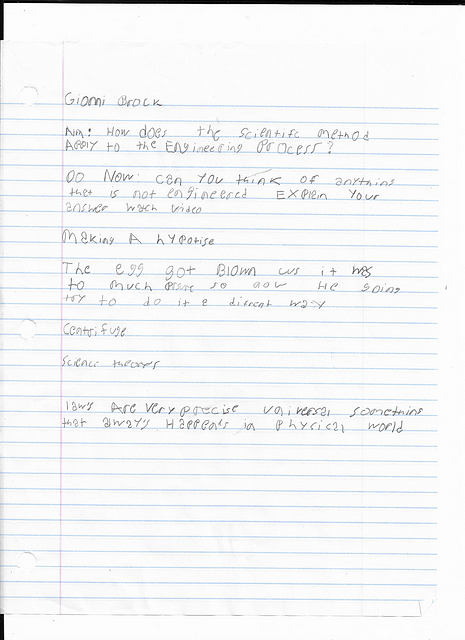 Gionni Brock
Aim: How does the scientifc method
Apply to the Engineering Process?
Do Now: can you think of anything
that is not engineered Explein your
answer wach video
Making A hypotise
The egg got Blown it was
to much so he going
try to do it e difrent way
Centrifuge
science theorys
laws Are very precise universal something
that always Happens in physical world